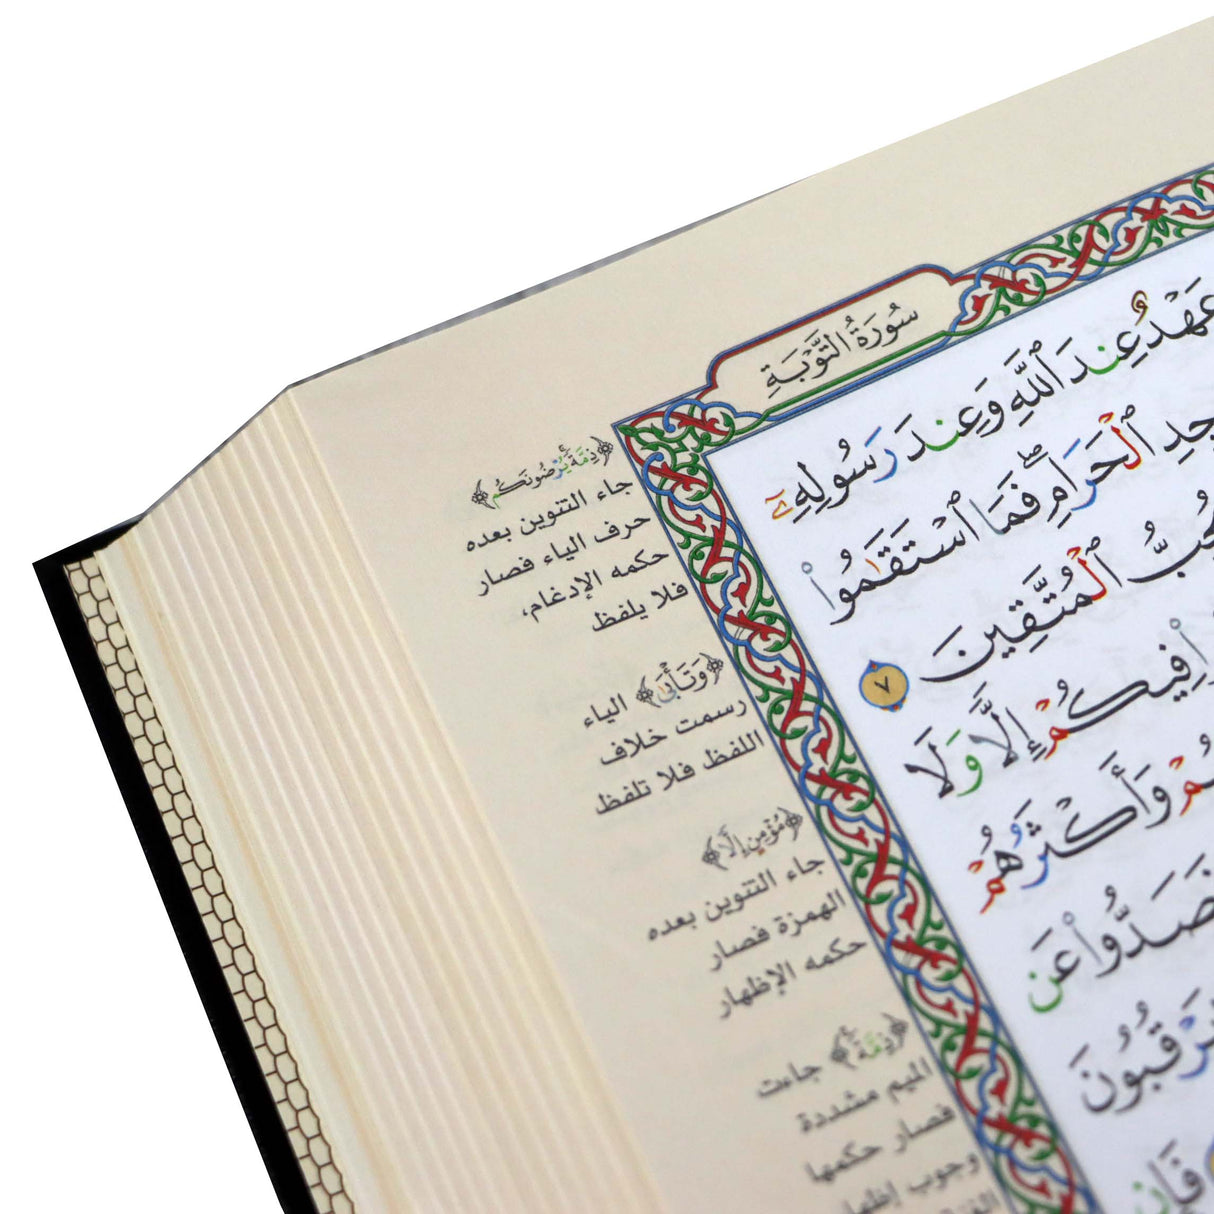 سُورَةُ التَّوْبَةِ
عَهْدٌ عِندَ ٱللَّهِ وَعِندَ رَسُولِهِۦٓ
ٱلْحَرَامِ ۖ فَمَا ٱسْتَقَٰمُوا۟
ٱلْمُتَّقِينَ ٧
فِيكُمْ إِلًّا وَلَا
وَأَكْثَرُهُمْ
فَصَدُّوا۟ عَن
يَرْقُبُونَ
فَإِن
﴿ذِمَّةً يُرْضُونَكُم﴾
جاء التنوين بعده
حرف الياء فصار
حكمه الإدغام،
فلا يلفظ
﴿وَتَأْبَىٰ﴾ الياء
رسمت خلاف
اللفظ فلا تلفظ
﴿مُؤْمِنٍ إِلًّا﴾
جاء التنوين بعده
الهمزة فصار
حكمه الإظهار
﴿ذِمَّةً﴾ جاءت
الميم مشددة
فصار حكمها
وجوب إظهار